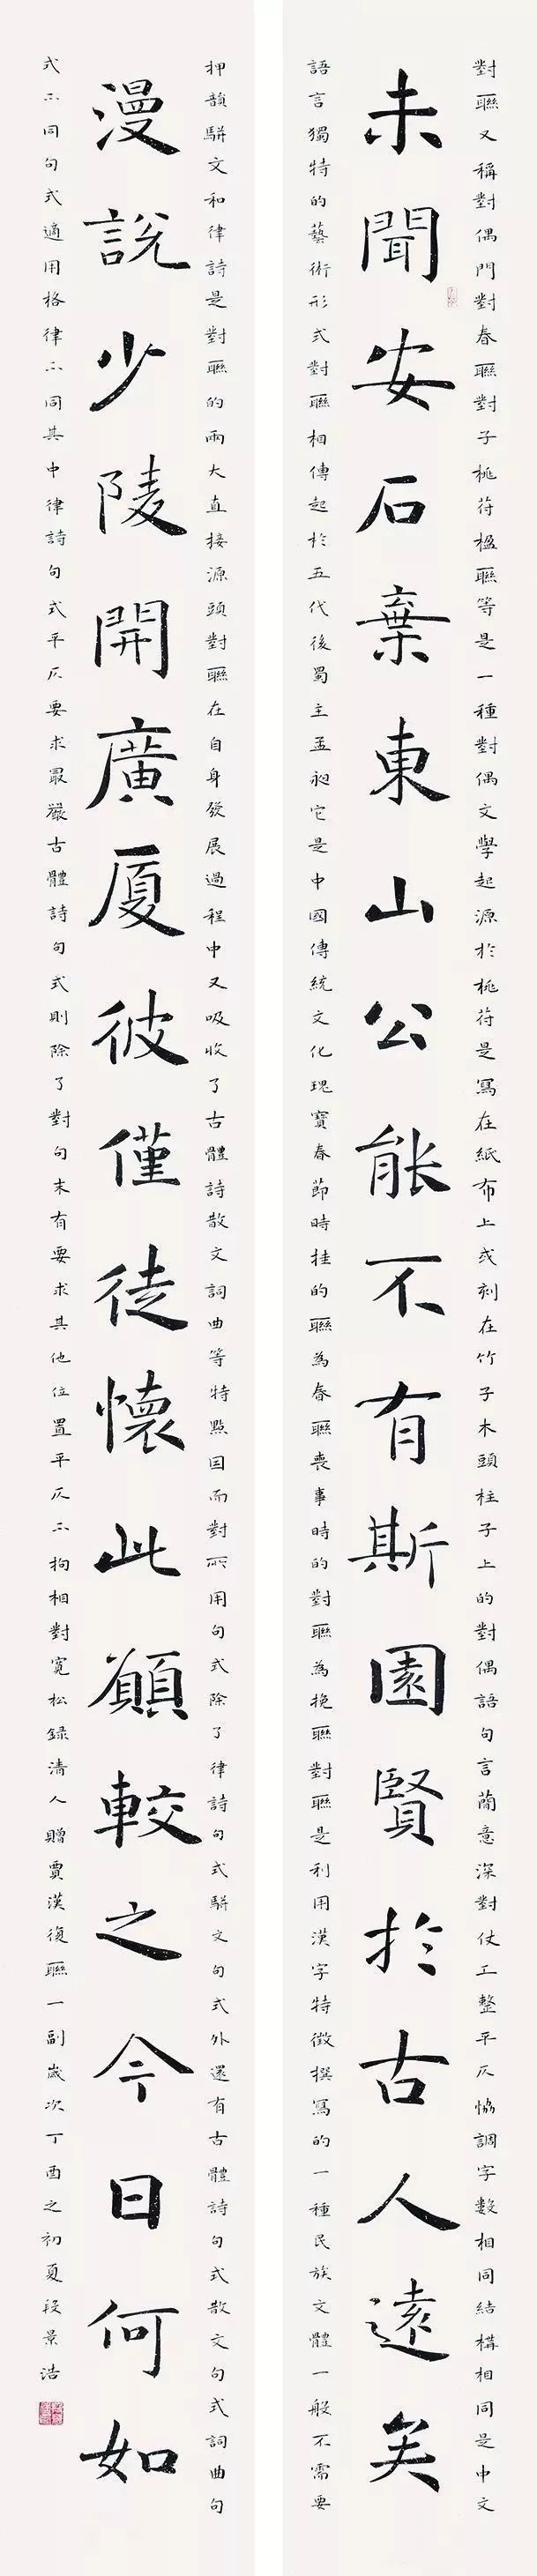 未聞安石棄東山公能不有斯園賢於古人遠矣
漫說少陵開廣厦彼僅徒懷此願較之今日何如
對聯又稱對偶門對春聯對子桃符楹聯等是一種對偶文學起源於桃符是寫在紙布上或刻在竹子木頭柱子上的對偶語句言簡意深對仗工整平仄協調字數相同結構相同是中文
語言獨特的藝術形式對聯相傳起於五代後蜀主孟昶它是中國傳統文化瑰寶春節時挂的聯為春聯喪事時的對聯為挽聯對聯是利用漢字特徵撰寫的一種民族文體一般不需要
押韻駢文和律詩是對聯的兩大直接源頭對聯在自身發展過程中又吸收了古體詩散文詞曲等特點因而對所用句式除了律詩句式駢文句式外還有古體詩句式散文句式詞曲句
式不同句式適用格律不同其中律詩句式平仄要求最嚴古體詩句式則除了對句末有要求其他位置平仄不拘相對寬松錄清人贈賈漢復聯一副歲次丁酉之初夏段景浩